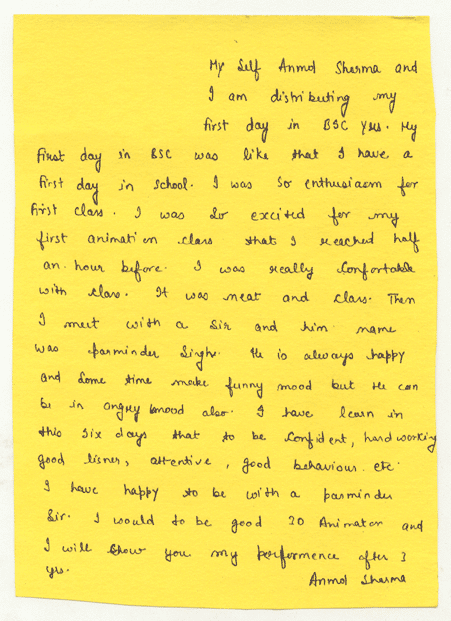 My Self Anmol Sharma and
I am distributing my
first day in BSC yrs. My
first day in BSC was like that I have a
first day in school. I was so enthusiasm for
first class. I was so excited for my
first animation class that I reached half
an hour before. I was really Confortable
with class. It was neat and class. Then
I meet with a Sir and him name
was parminder Singh. He is always happy
and some time make funny mood but He can
be in angry mood also. I have learn in
this six days that to be Confident, hard working
good lisner, attentive, good behaviour etc.
I have happy to be with a parminder
Sir. I would to be good 2D Animator and
I will show you my performence after 3
yrs.
Anmol Sharma